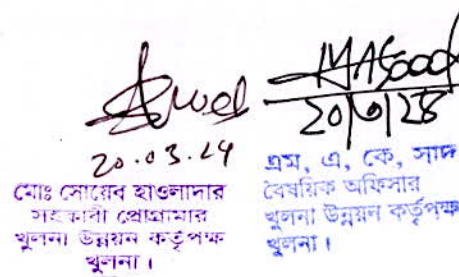 20.03.24
মোঃ সোয়েব হাওলাদার
সহকারী প্রোগ্রামার
খুলনা উন্নয়ন কর্তৃপক্ষ
খুলনা।
এম, এ, কে, সাদ
বৈষয়িক অফিসার
খুলনা উন্নয়ন কর্তৃপক্ষ
খুলনা।